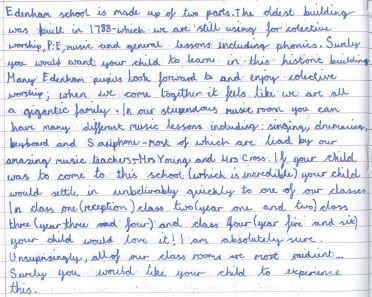 Edenham school is made up of two parts. The oldest building
was built in 1788-which we are still using for colective
worship, P.E, music and general lessons including phonics. Surely
you would want your child to learn in this historic building.
Many Edenham pupils look forward to and enjoy colective
worship; when we come together it feels like we are all
a gigantic family. In our stupendous music room you can
have many different music lessons including: singing, drumming,
keyboard and Saxiphone-most of which are lead by our
amazing music teachers-Mrs Young and Mrs Cross. If your child
was to come to this school (which is incredible) your child
would settle in unbelivably quickly to one of our classes.
In class one (reception) class two (year one and two) class
three (year three and four) and class four (year five and six)
your child would love it! I am absolutely sure.
Unsuprisingly, all of our class rooms are most radient...
Surely you would like your child to experience
this.